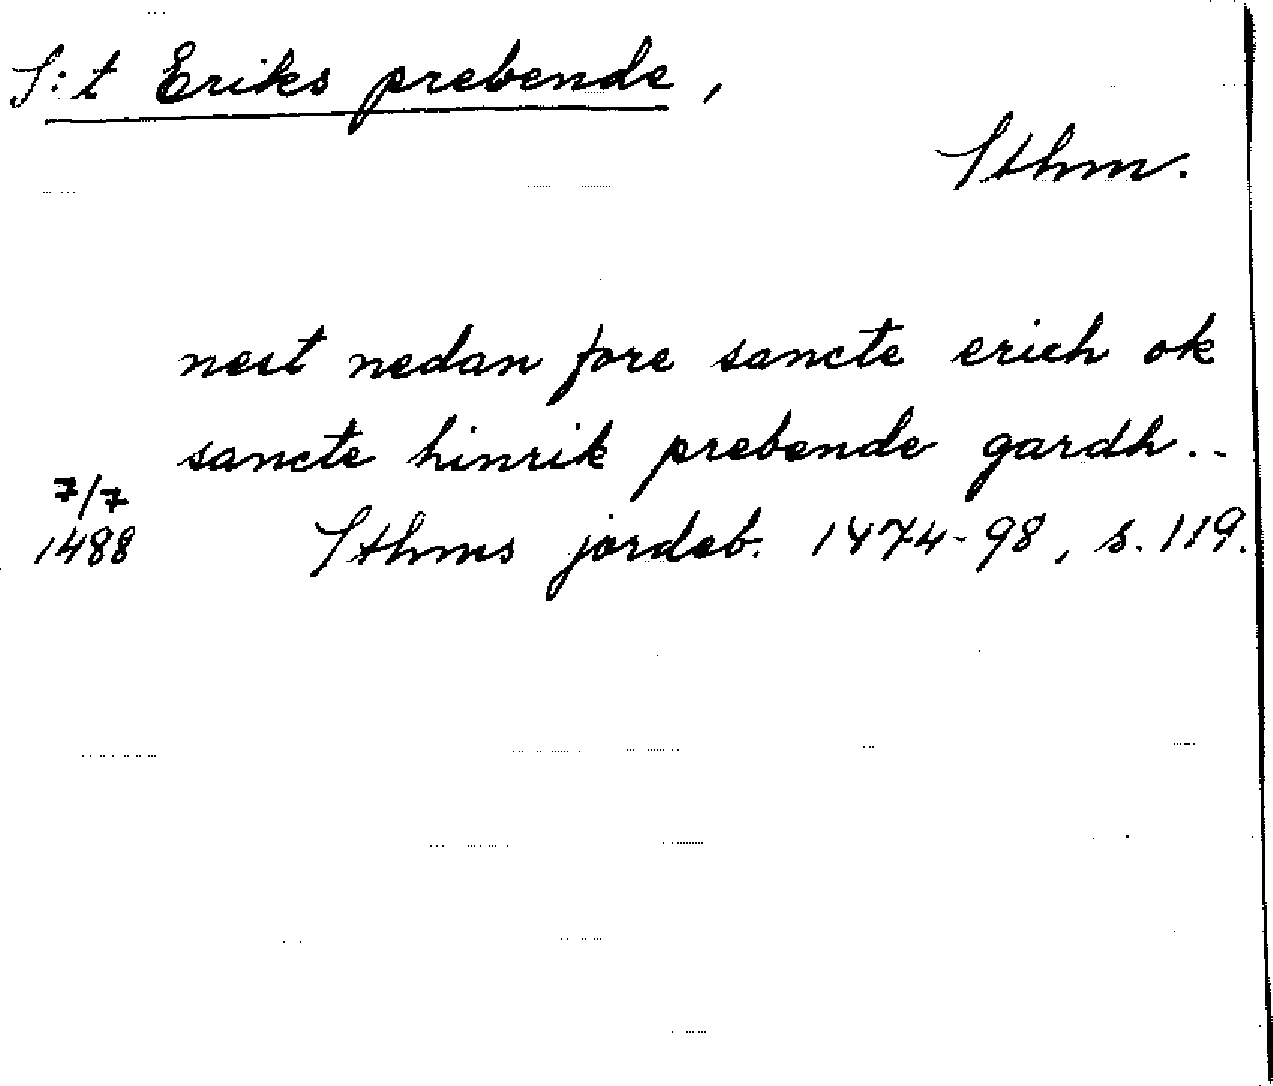 S:t Eriks prebende,
Sthm.
nest nedan fore sancte erich ok
sancte hinrik prebende gardh..
7/7
1488 Sthms jordeb. 1474-98, s. 119.